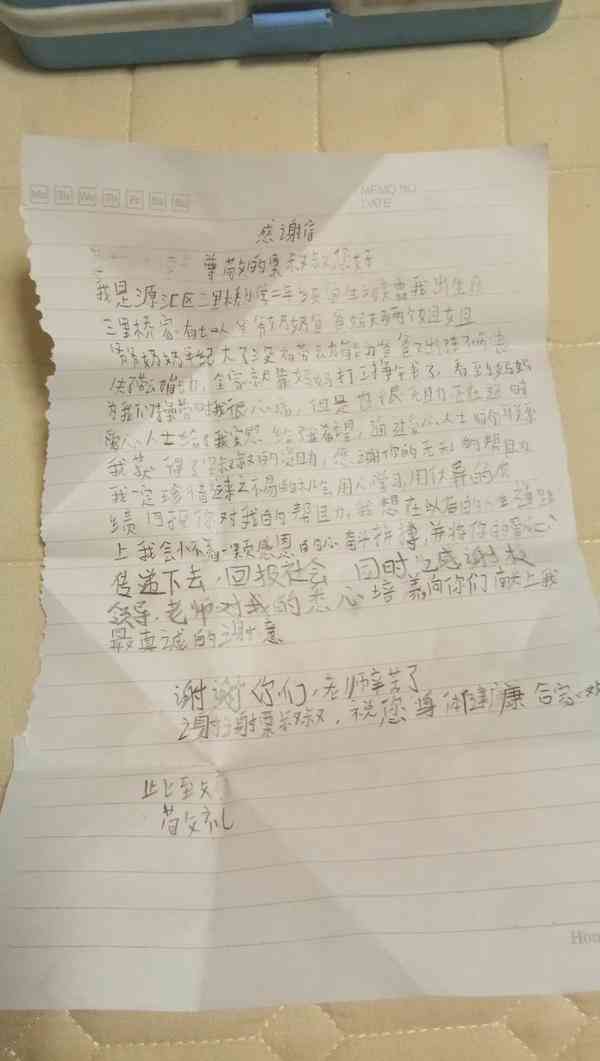 Mo Tu We Th Fr Sa Su
MEMO NO.
DATE
感谢信
尊敬的栗叔叔您好
我是源汇区三里桥小学二年级 我出生在
三里桥 爷爷奶奶爸爸妈妈两个姐姐
爷爷奶奶年纪大了没有劳动能力爸爸
全家就靠妈妈打工挣钱了 看到妈妈
为我们操劳时我很心痛，但是也很无力正在这时
爱心人士给了我 给 希望，通过爱心人士的
我获得了栗叔叔的资助，感谢你的无私的帮助
我一定珍惜这来之不易的机会用心学习用优异的成
绩回报你对我的帮助，我想在以后的人生道路
上我会怀着一颗感恩的心奋斗拼搏，并将你的爱心
传递下去，回报社会 同时 感谢校
领导.老师对我的悉心培养向你们献上我
最真诚的谢意
谢谢你们，老师辛苦了
谢谢栗叔叔，祝您身体健康合家欢
此
敬礼